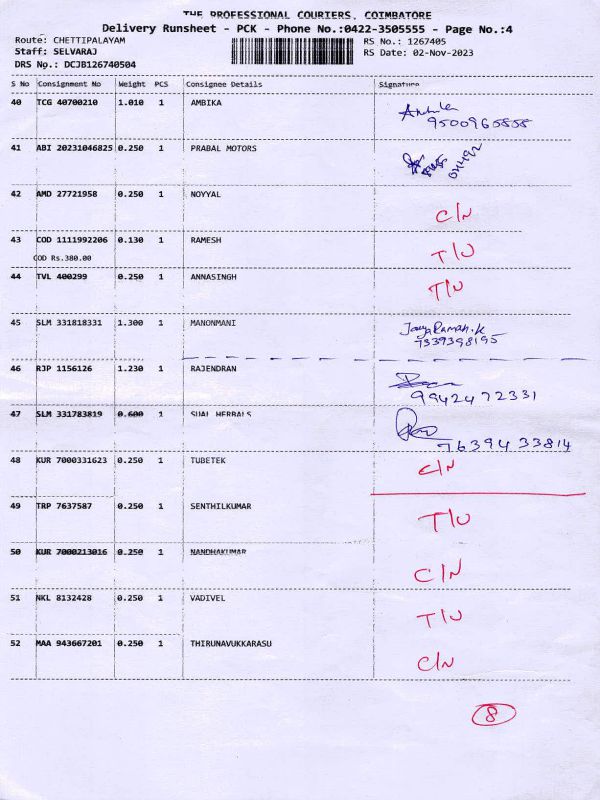 THE PROFESSIONAL COURIERS, COIMBATORE
Delivery Runsheet - PCK - Phone No.:0422-3505555 - Page No.:4
Route: CHETTIPALAYAM RS No.: 1267405
Staff: SELVARAJ RS Date: 02-Nov-2023
DRS No.: DCJB126740504
S No Consignment No Weight PCS Consignee Details Signature
40 TCG 40700210 1.010 1 AMBIKA Ambika
9500965858
41 ABI 20231046825 0.250 1 PRABAL MOTORS
42 AMD 27721958 0.250 1 NOYYAL C/N
43 COD 1111992206 0.130 1 RAMESH T/U
COD Rs.380.00
44 TVL 400299 0.250 1 ANNASINGH T/U
45 SLM 331818331 1.300 1 MANONMANI JayaRaman.K
7339398195
46 RJP 1156126 1.230 1 RAJENDRAN
9942472331
47 SLM 331783819 0.600 1 SUAL HERBALS
7639433814
48 KUR 7000331623 0.250 1 TUBETEK C/N
49 TRP 7637587 0.250 1 SENTHILKUMAR T/U
50 KUR 7000213016 0.250 1 NANDHAKUMAR C/N
51 NKL 8132428 0.250 1 VADIVEL T/U
52 MAA 943667201 0.250 1 THIRUNAVUKKARASU C/N
8